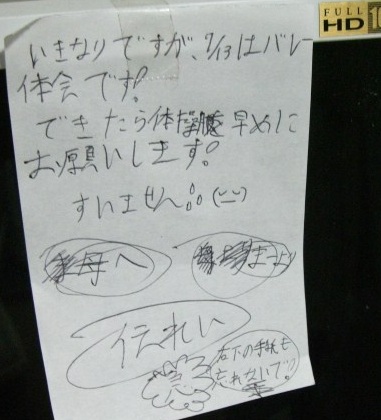 FULL
HD
いきなりですが、9/13はバレー
体会です!
できたら体 早めに
お願いします。
すいません
母へ
より
伝れい
右下の手紙も
忘れないで!